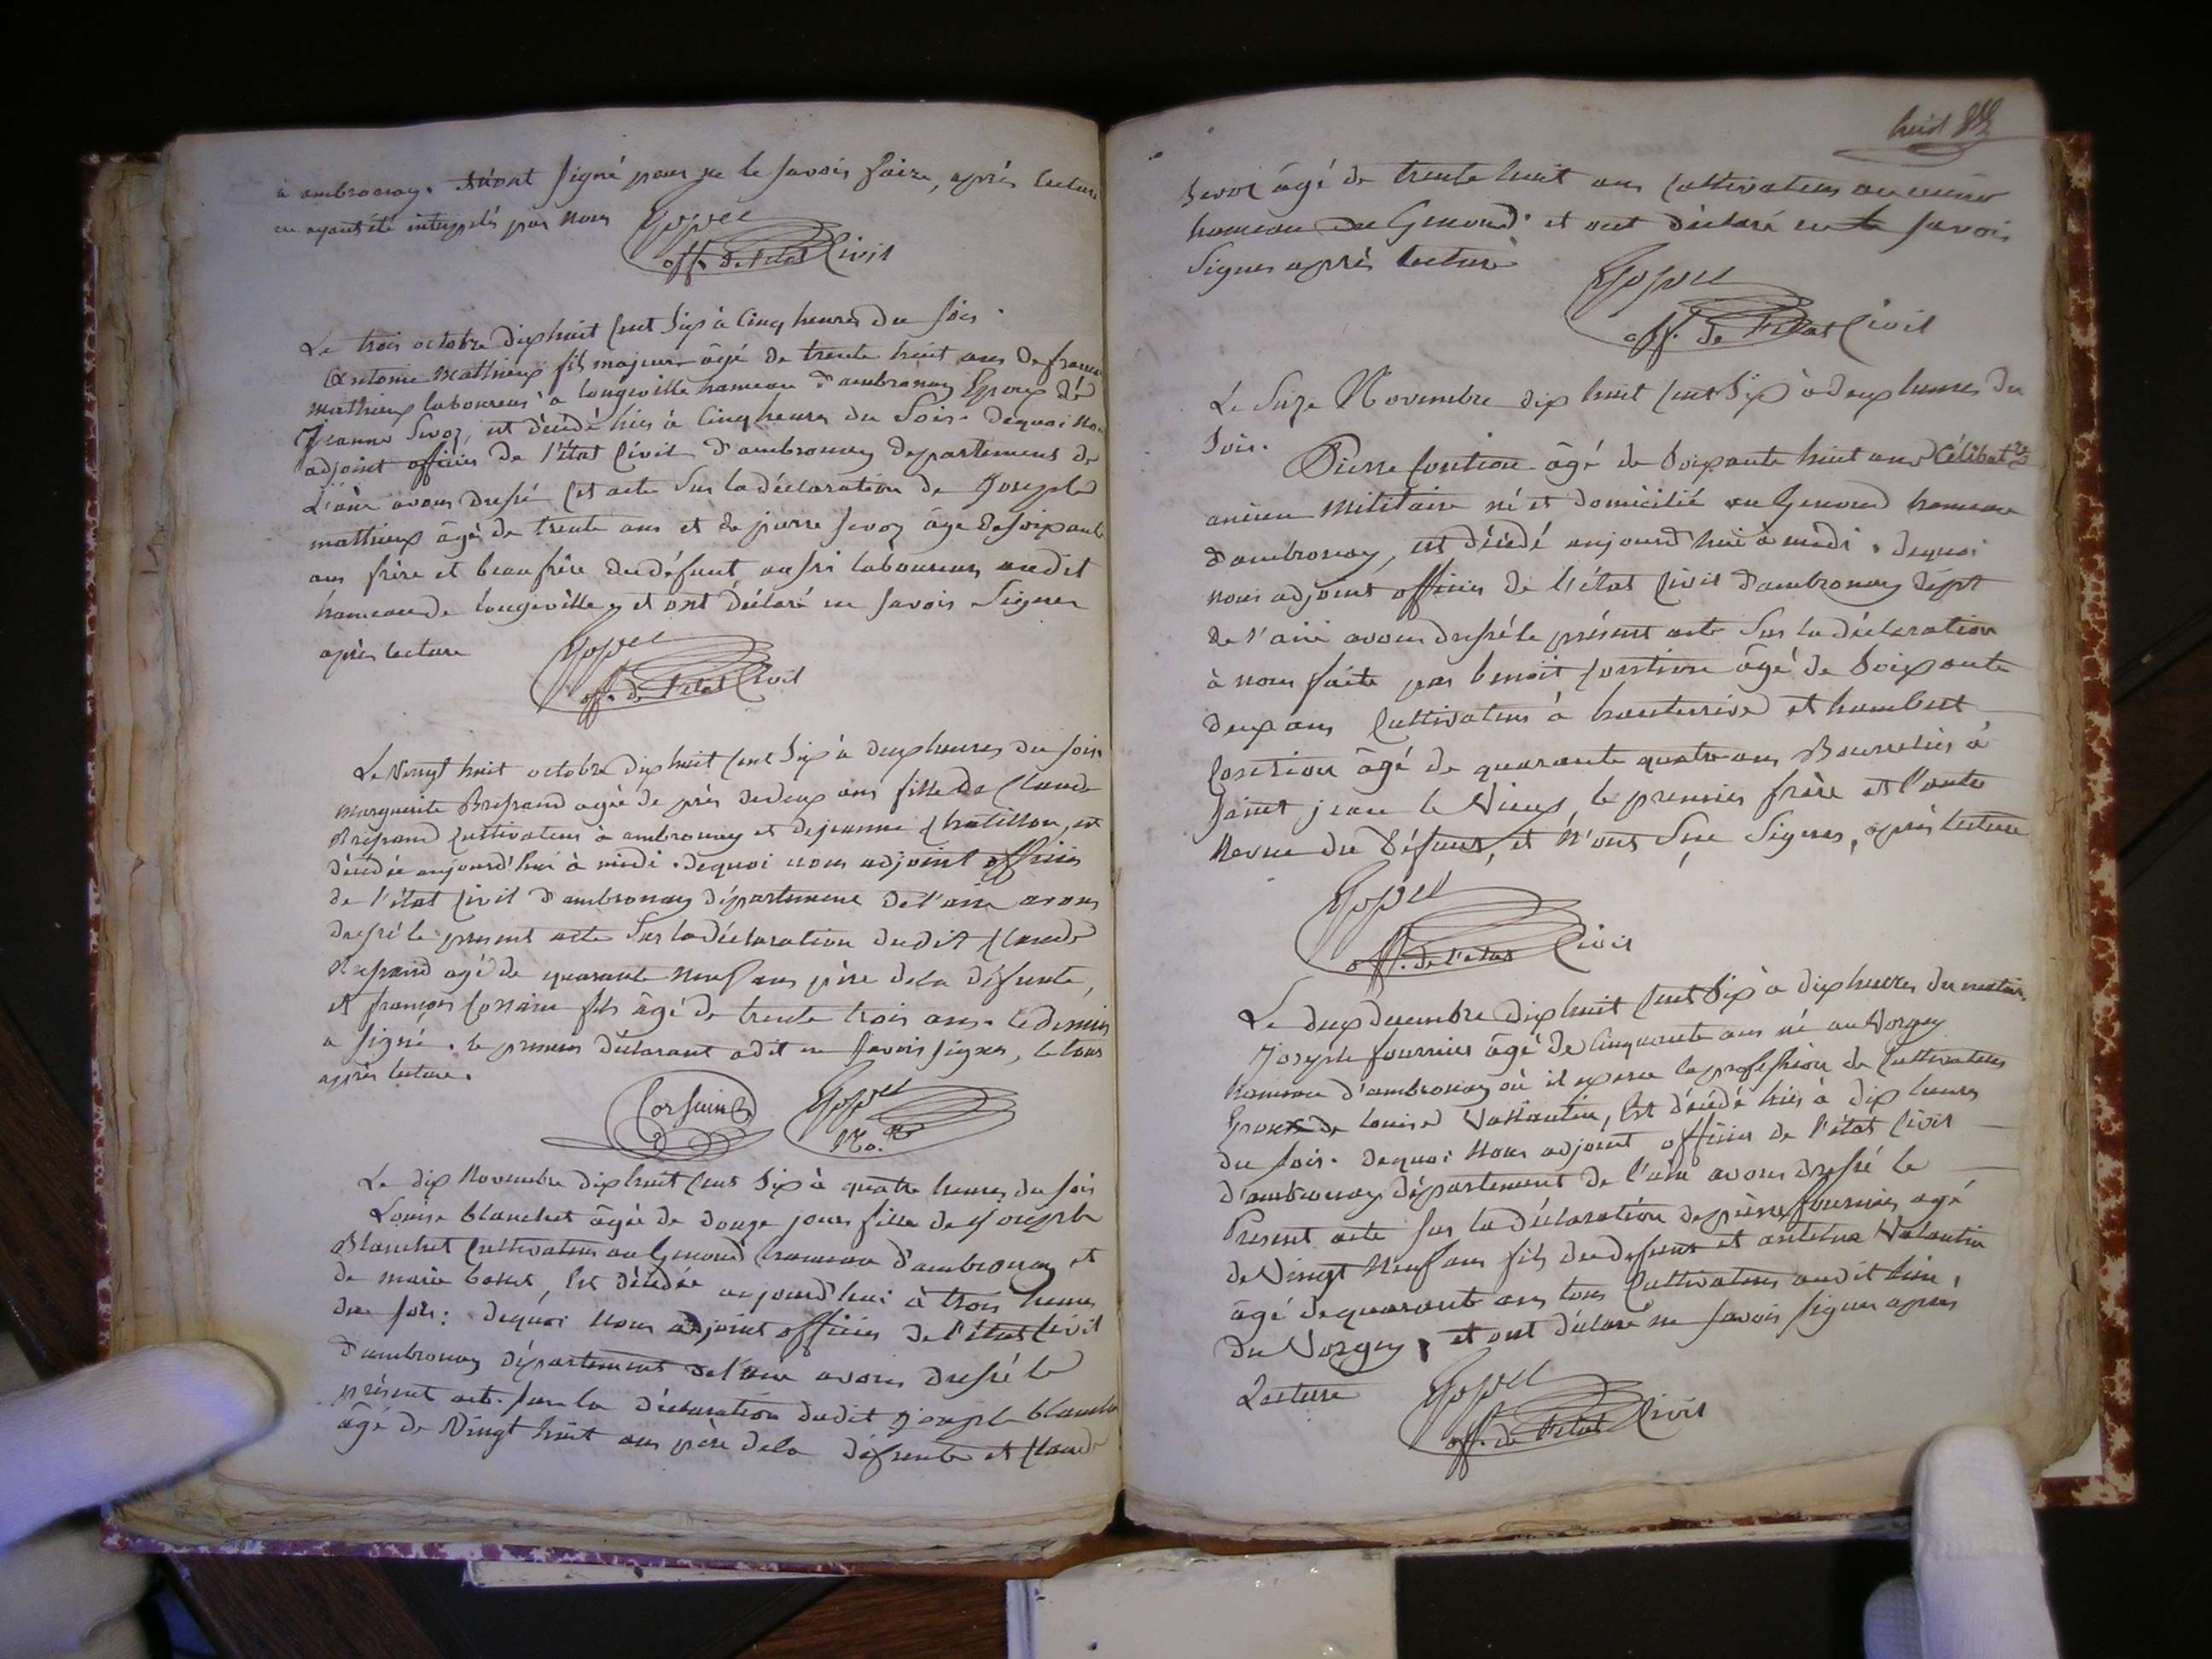 à ambronay. N'ont signé pour ne le savoir faire, après lecture
en ayant été interpelés par nous
off. de l'état Civil
Le trois octobre dix huit cent Six à Cinq heures du soir.
Antoine Mathieux fils majeur âgé de trente huit ans de
mathieux laboureur à longeville hameau d'ambronay Epoux de
Jeanne Sevoz, est décédé hier à Cinq heures du Soir. dequoi
adjoint officier de l'état Civil d'ambronay departement de
L'ain avons dressé cet acte Sur la déclaration de Joseph
mathieux âgé de trente ans et de pierre sevoz âgé de soixante
ans frère et beaufrère du défunt aussi laboureurs audit
hameau de longeville, et ont déclaré ne savoir Signer
après lecture
off. de l'état Civil
Le Vingt huit octobre dix huit cent Six à deux heures du soir
marguerite Bressand agée de près de deux ans fille de Claude
Bressand Cultivateur à ambronay et de jeanne Chatillon, est
décédée aujourd'hui à midi. dequoi nous adjoint officier
de l'état Civil d'ambronay département de l'ain avons
dressé le present acte Sur la déclaration dudit Claude
Bressand agé de quarante neuf ans père dela défunte,
et françois fils âgé de trente trois ans. le dernier
a signé. le premier déclarant a dit ne savoir signer, le tout
après lecture.
Le dix Novembre dix huit cent Six à quatre heures du soir
Louise blanchet âgée de douze jours fille de joseph
Blanchet Cultivateur au Genoud hameau d'ambronay et
de marie, Est décédée aujourd'hui à trois heures
du soir: dequoi Nous adjoint officier de l'état Civil
d'ambronay département del'ain avons dressé le
présent acte sur la déclaration dudit joseph
âgé de Vingt huit ans père dela défunte et Claude
huit
Sevoz âgé de trente huit ans Cultivateur au même
hameau du Genoud. et ont déclaré ne savoir
Signer après lecture
off. de l'état Civil
Le Novembre dix huit cent Six à deux heures du
Soir.
Pierre âgé de Soixante huit ans Célibat.re
ancien Militaire né et domicilié au Genoud hameau
d'ambronay, est décédé aujourd'hui à midi. dequoi
nous adjoint officier de l'état Civil d'ambronay dépt
de l'ain avons dressé le présent acte Sur la déclaration
à nous faite par benoit âgé de Soixante
deux ans Cultivateur à hauterrive et humbert
âgé de quarante quatre ans Bourrelier à
Saint jean le Vieux, le premier frère et l'autre
Neveu du Défunt, et N'ont Su Signer, après lecture
off. de l'état Civil
Le deux decembre dix huit cent Six à dix heures du matin.
Joseph fournier âgé de Cinquante ans né au Vorgey
hameau d'ambronay où il exerce la profession de Cultivateur
Epoux de louise Vallantin, Est décédé hier à dix heures
du soir. dequoi Nous adjoint officier de l'état Civil
d'ambronay département de l'ain avons dressé le
Present acte sur la déclaration de pierre fournier agé
de Vingt Neuf ans fils du defunt et antelme Valantin
âgé de quarante ans tous Cultivateurs audit lieu
du Vorgey, et ont déclaré ne savoir signer après
Lecture
off. de l'état Civil